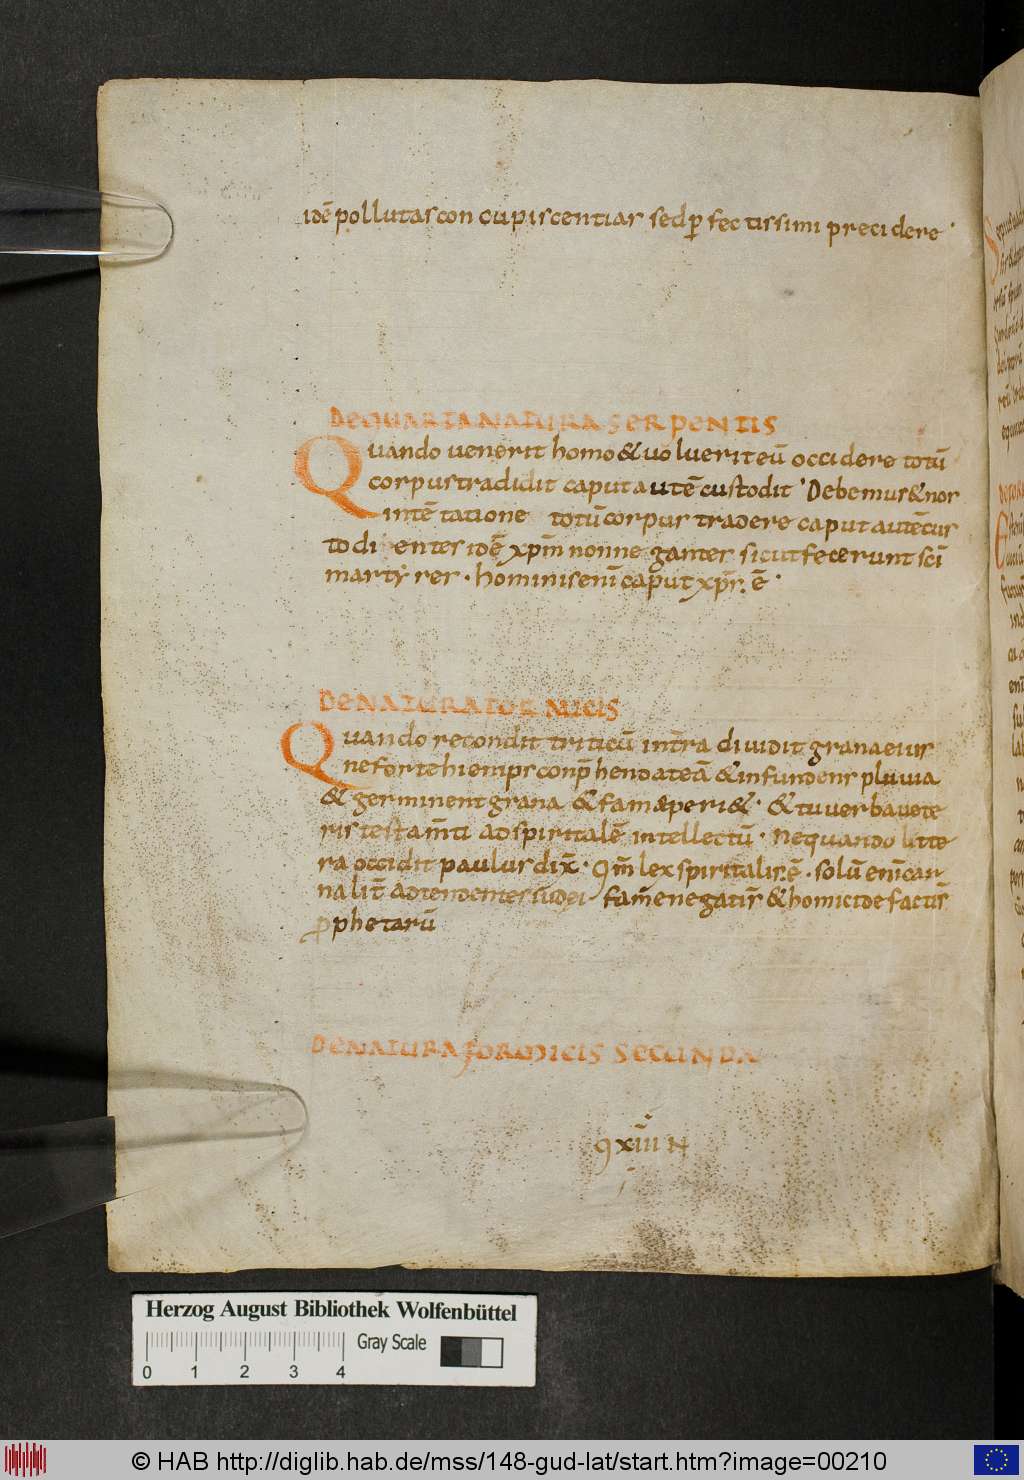 idē pollutas concupiscentias sed p̱ fectissimi precidere·
DE QUARTA NATURA SERPENTIS
Quando uenerit homo & uoluerit eū occidere totū
corpus tradidit caput autē custodit· Debemus & nos
intē tatione totū corpus tradere caput autē cus
todi entes idē xp̄m non negantes sicut fecerunt sc̄i
martẏres· hominis enī caput xp̄s· ē·
DE NATURA FORMICIS
Quando recondit triticū int̄ra diuidit grana eius
ne forte hiemps conp̄hendat eā & infundens pluuia
& germinent grana & fam æperi&· & tu uerba uete
ris testam̄ti ad spiritalē intellectū· Ne quando litte
ra occidit paulus dix̄· qm̄ lex spiritalis· ē· solū enī car
nalit̄ adtendentes iudei fam̄e negati s̄ & homicide facti s̄
p̱phetarū
DE NATURA FORMICIS SECUNDA
q xiiii N
Herzog August Bibliothek Wolfenbüttel
Gray Scale
0 1 2 3 4
© HAB http://diglib.hab.de/mss/148-gud-lat/start.htm?image=00210